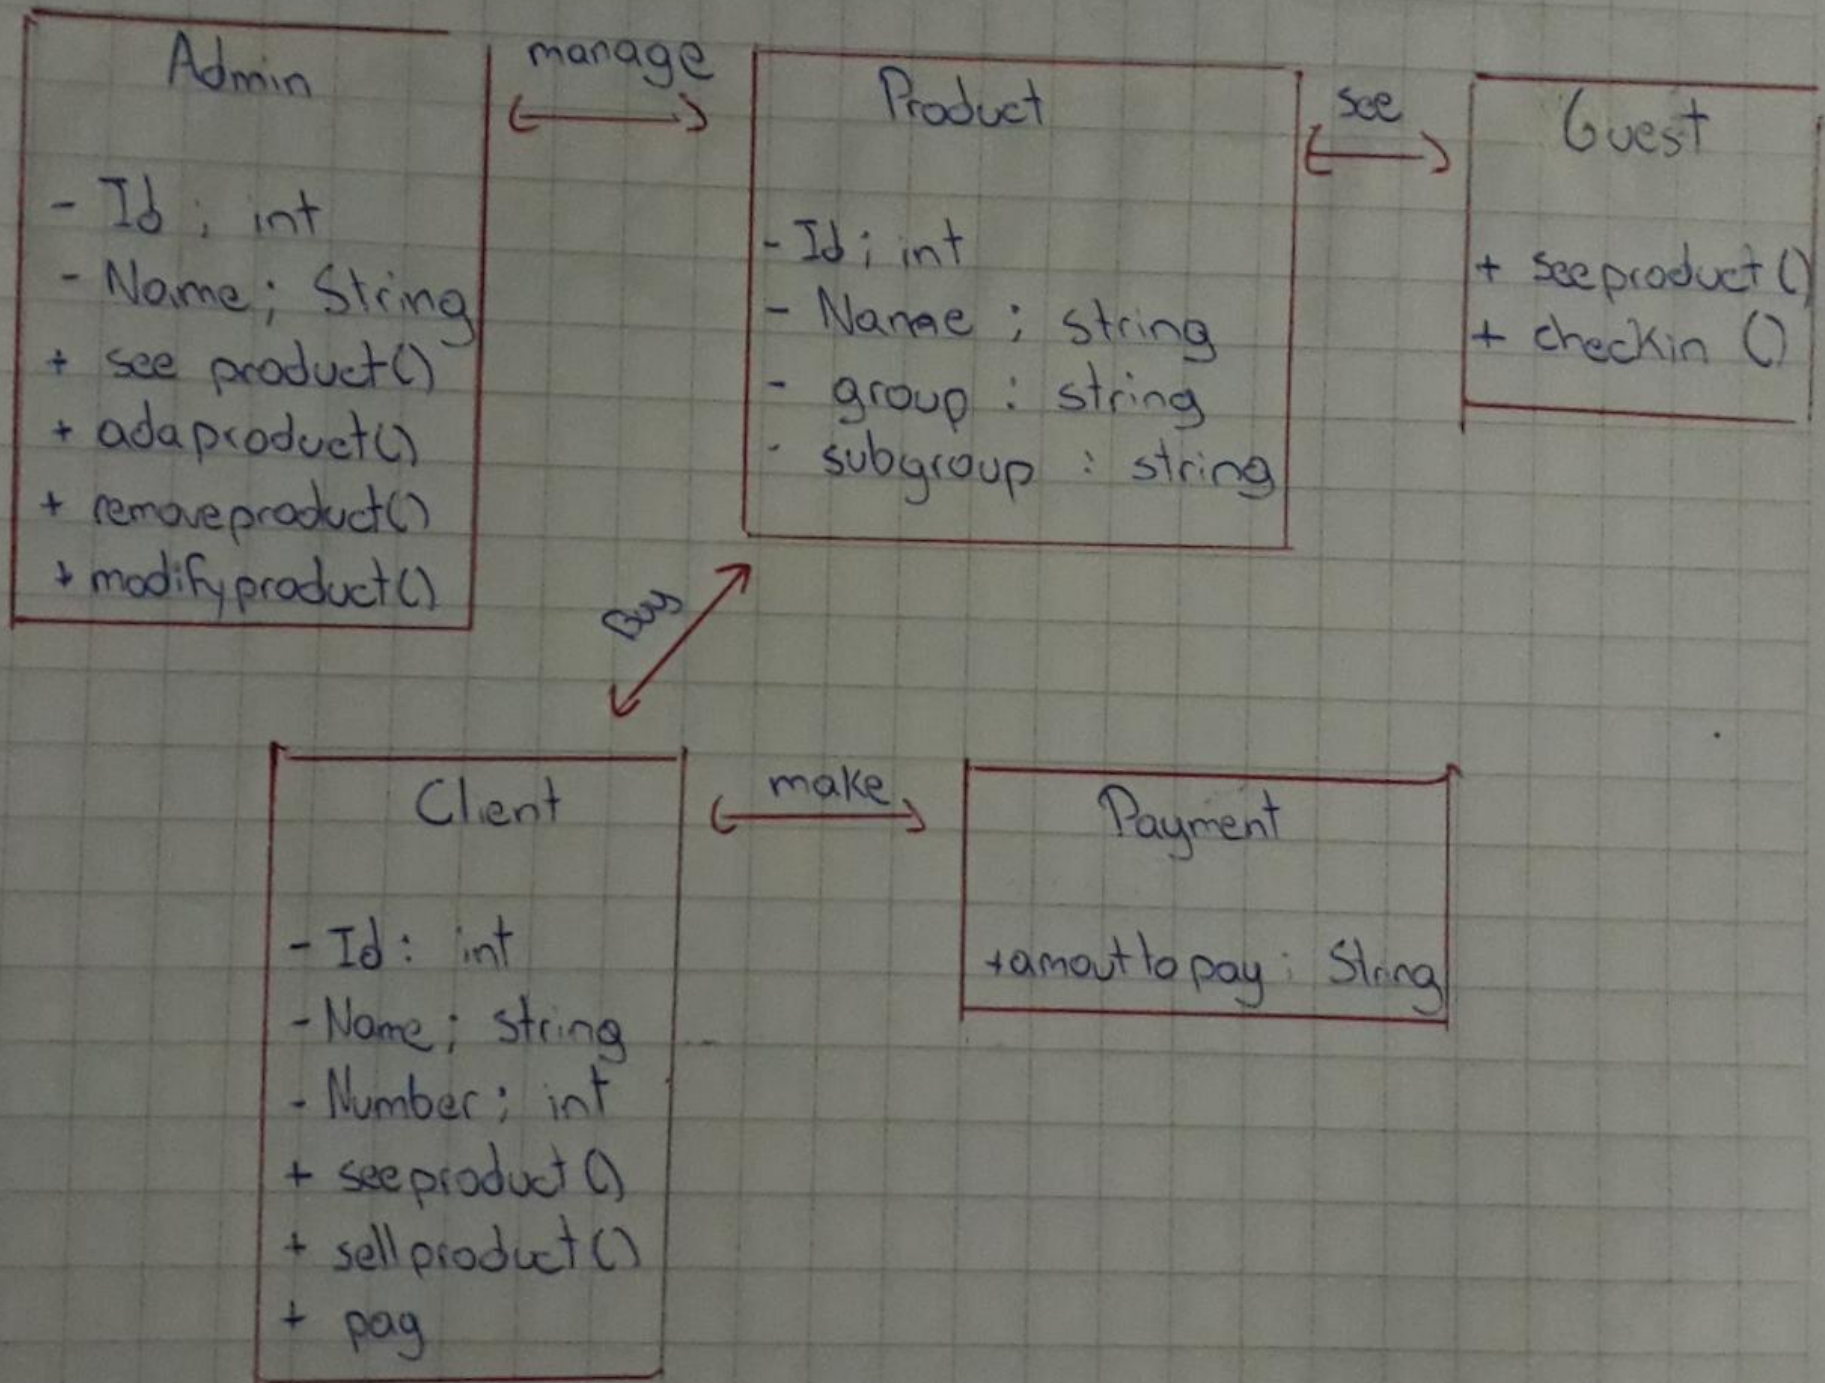 Admin
- Id ; int
- Name ; String
+ see product()
+ adaproduct()
+ removeproduct()
+ modifyproduct()
manage
Product
- Id ; int
- Name ; string
- group : string
- subgroup : string
see
Guest
+ seeproduct ()
+ checkin ()
Buy
Client
- Id : int
- Name ; string
- Number ; int
+ seeproduct ()
+ sellproduct ()
+ pag
make
Payment
+amout to pay : String